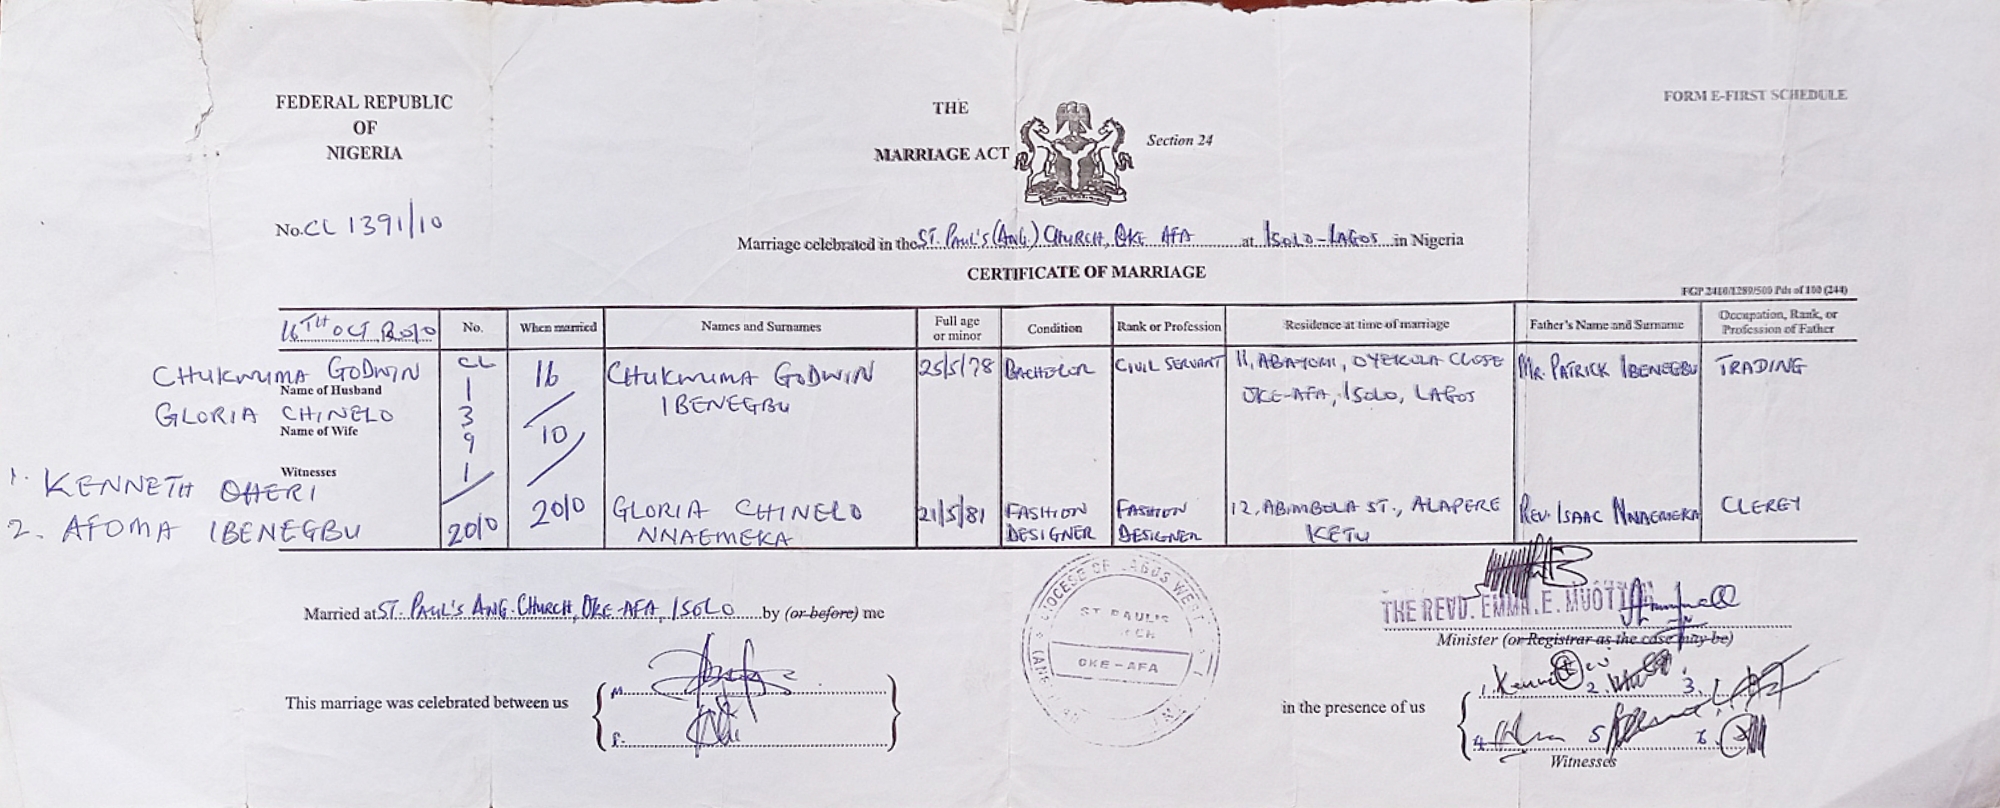 FEDERAL REPUBLIC
OF
NIGERIA
THE
MARRIAGE ACT
Section 24
FORM E-FIRST SCHEDULE
No. CL 1391/10
Marriage celebrated in the ST. PAUL'S (ANG.) CHURCH, OKE AFA at ISOLO-LAGOS in Nigeria
CERTIFICATE OF MARRIAGE
FGP 2410/1289/500 Pds of 100 (244)
16TH OCT 2010 No. When married Names and Surnames Full age or minor Condition Rank or Profession Residence at time of marriage Father's Name and Surname Occupation, Rank, or Profession of Father
CHUKWUMA GODWIN
Name of Husband
GLORIA CHINELO
Name of Wife
Witnesses
1. KENNETH OHERI
2. AFOMA IBENEGBU
CL 1391/2010
16/10/2010
CHUKWUMA GODWIN IBENEGBU 25/5/78 BACHELOR CIVIL SERVANT 11, ABAYOMI, OYEKOLA CLOSE OKE-AFA, ISOLO, LAGOS MR. PATRICK IBENEGBU TRADING
GLORIA CHINELO NNAEMEKA 21/5/81 FASHION DESIGNER FASHION DESIGNER 12, ABIMBOLA ST., ALAPERE KETU REV. ISAAC NNAEMEKA CLERGY
Married at ST. PAUL'S ANG. CHURCH, OKE-AFA, ISOLO by (or before) me
DIOCESE OF LAGOS WEST
ST PAUL'S
OKE-AFA
THE REVD. EMMA. E.
Minister (or Registrar as the case may be)
This marriage was celebrated between us
M
F.
in the presence of us
1. 2. 3.
4 5 6
Witnesses